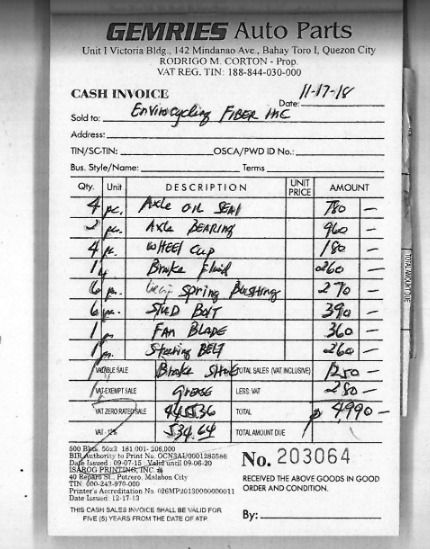 GEMRIES Auto Parts
Unit I Victoria Bldg., 142 Mindanao Ave., Bahay Toro I, Quezon City
RODRIGO M. CORTON - Prop.
VAT REG. TIN: 188-844-030-000
CASH INVOICE Date: 11-17-18
Sold to: Envirocycling FIBER INC
Address:
TIN/SC-TIN: OSCA/PWD ID No.:
Bus. Style/Name: Terms
Qty. Unit DESCRIPTION UNIT PRICE AMOUNT
4 pc. Axle OIL SEAL 780 —
2 pc. Axle BEARING 960 —
4 pc. WHEEL CUP 180 —
Brake Fluid 260 —
6 pc. Spring Bushing 270 —
6 pc. STUD BOLT 390 —
1 pc. FAN BLADE 360 —
1 pc. Steering BELT 260 —
VATABLE SALE Brake Shoe TOTAL SALES (VAT INCLUSIVE) 1250 —
VAT-EXEMPT SALE GREASE LESS: VAT 280 —
VAT ZERO RATED SALE 4455.36 TOTAL P 4990 —
VAT - 12% 534.64 TOTAL AMOUNT DUE
500 Bkls. 50x3 181,001- 206,000
BIR Authority to Print No.
Date Issued 09-07-15 Valid until 09-06-20
ISAROG PRINTING, INC.
40 Reparo St., Potrero, Malabon City
TIN 000-243-976-000
Printer's Accreditation No.
Date Issued 12-17-13
No. 203064
RECEIVED THE ABOVE GOODS IN GOOD
ORDER AND CONDITION.
THIS CASH SALES INVOICE SHALL BE VALID FOR
FIVE (5) YEARS FROM THE DATE OF ATP
By:
TOTAL AMOUNT DUE